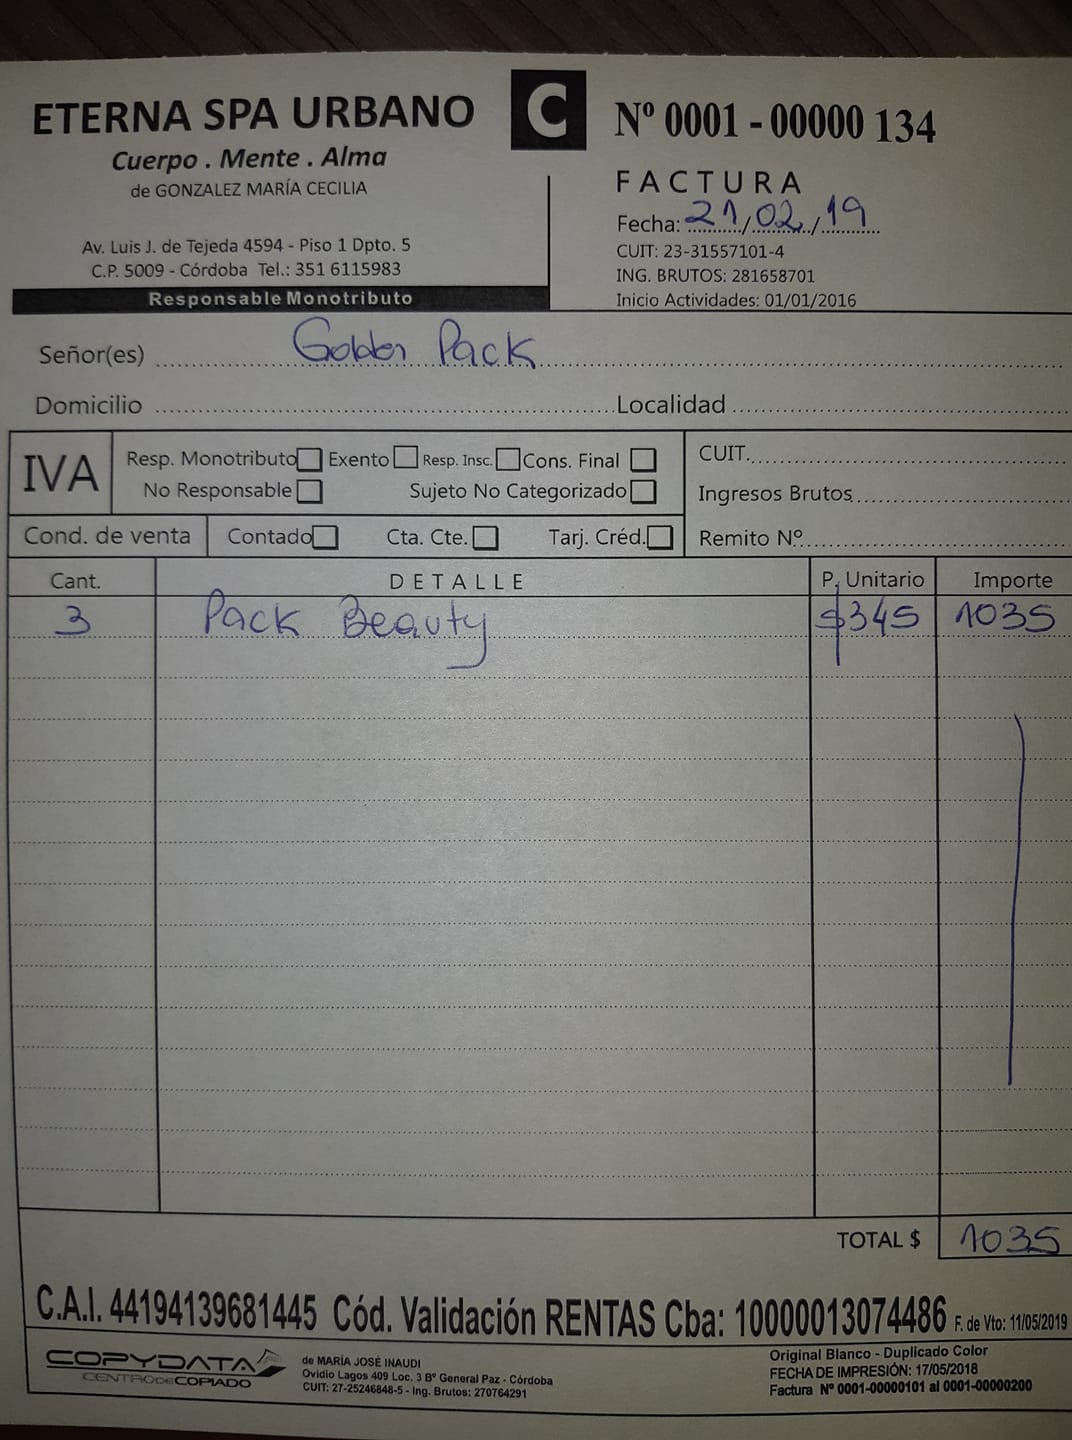 ETERNA SPA URBANO
Cuerpo . Mente . Alma
de GONZALEZ MARÍA CECILIA
Av. Luis J. de Tejeda 4594 - Piso 1 Dpto. 5
C.P. 5009 - Córdoba Tel.: 351 6115983
Responsable Monotributo
C
Nº 0001 - 00000 134
FACTURA
Fecha: 21/02/19
CUIT: 23-31557101-4
ING. BRUTOS: 281658701
Inicio Actividades: 01/01/2016
Señor(es) Golden Pack
Domicilio Localidad
IVA
Resp. Monotributo Exento Resp. Insc. Cons. Final
No Responsable Sujeto No Categorizado
CUIT.
Ingresos Brutos
Cond. de venta Contado Cta. Cte. Tarj. Créd. Remito Nº
Cant. DETALLE P. Unitario Importe
3 Pack Beauty $345 1035
TOTAL $ 1035
C.A.I. 44194139681445 Cód. Validación RENTAS Cba: 10000013074486 F. de Vto: 11/05/2019
COPYDATA
CENTRO DE COPIADO
de MARÍA JOSÉ INAUDI
Ovidio Lagos 409 Loc. 3 Bº General Paz - Córdoba
CUIT: 27-25246848-5 - Ing. Brutos: 270764291
Original Blanco - Duplicado Color
FECHA DE IMPRESIÓN: 17/05/2018
Factura Nº 0001-00000101 al 0001-00000200